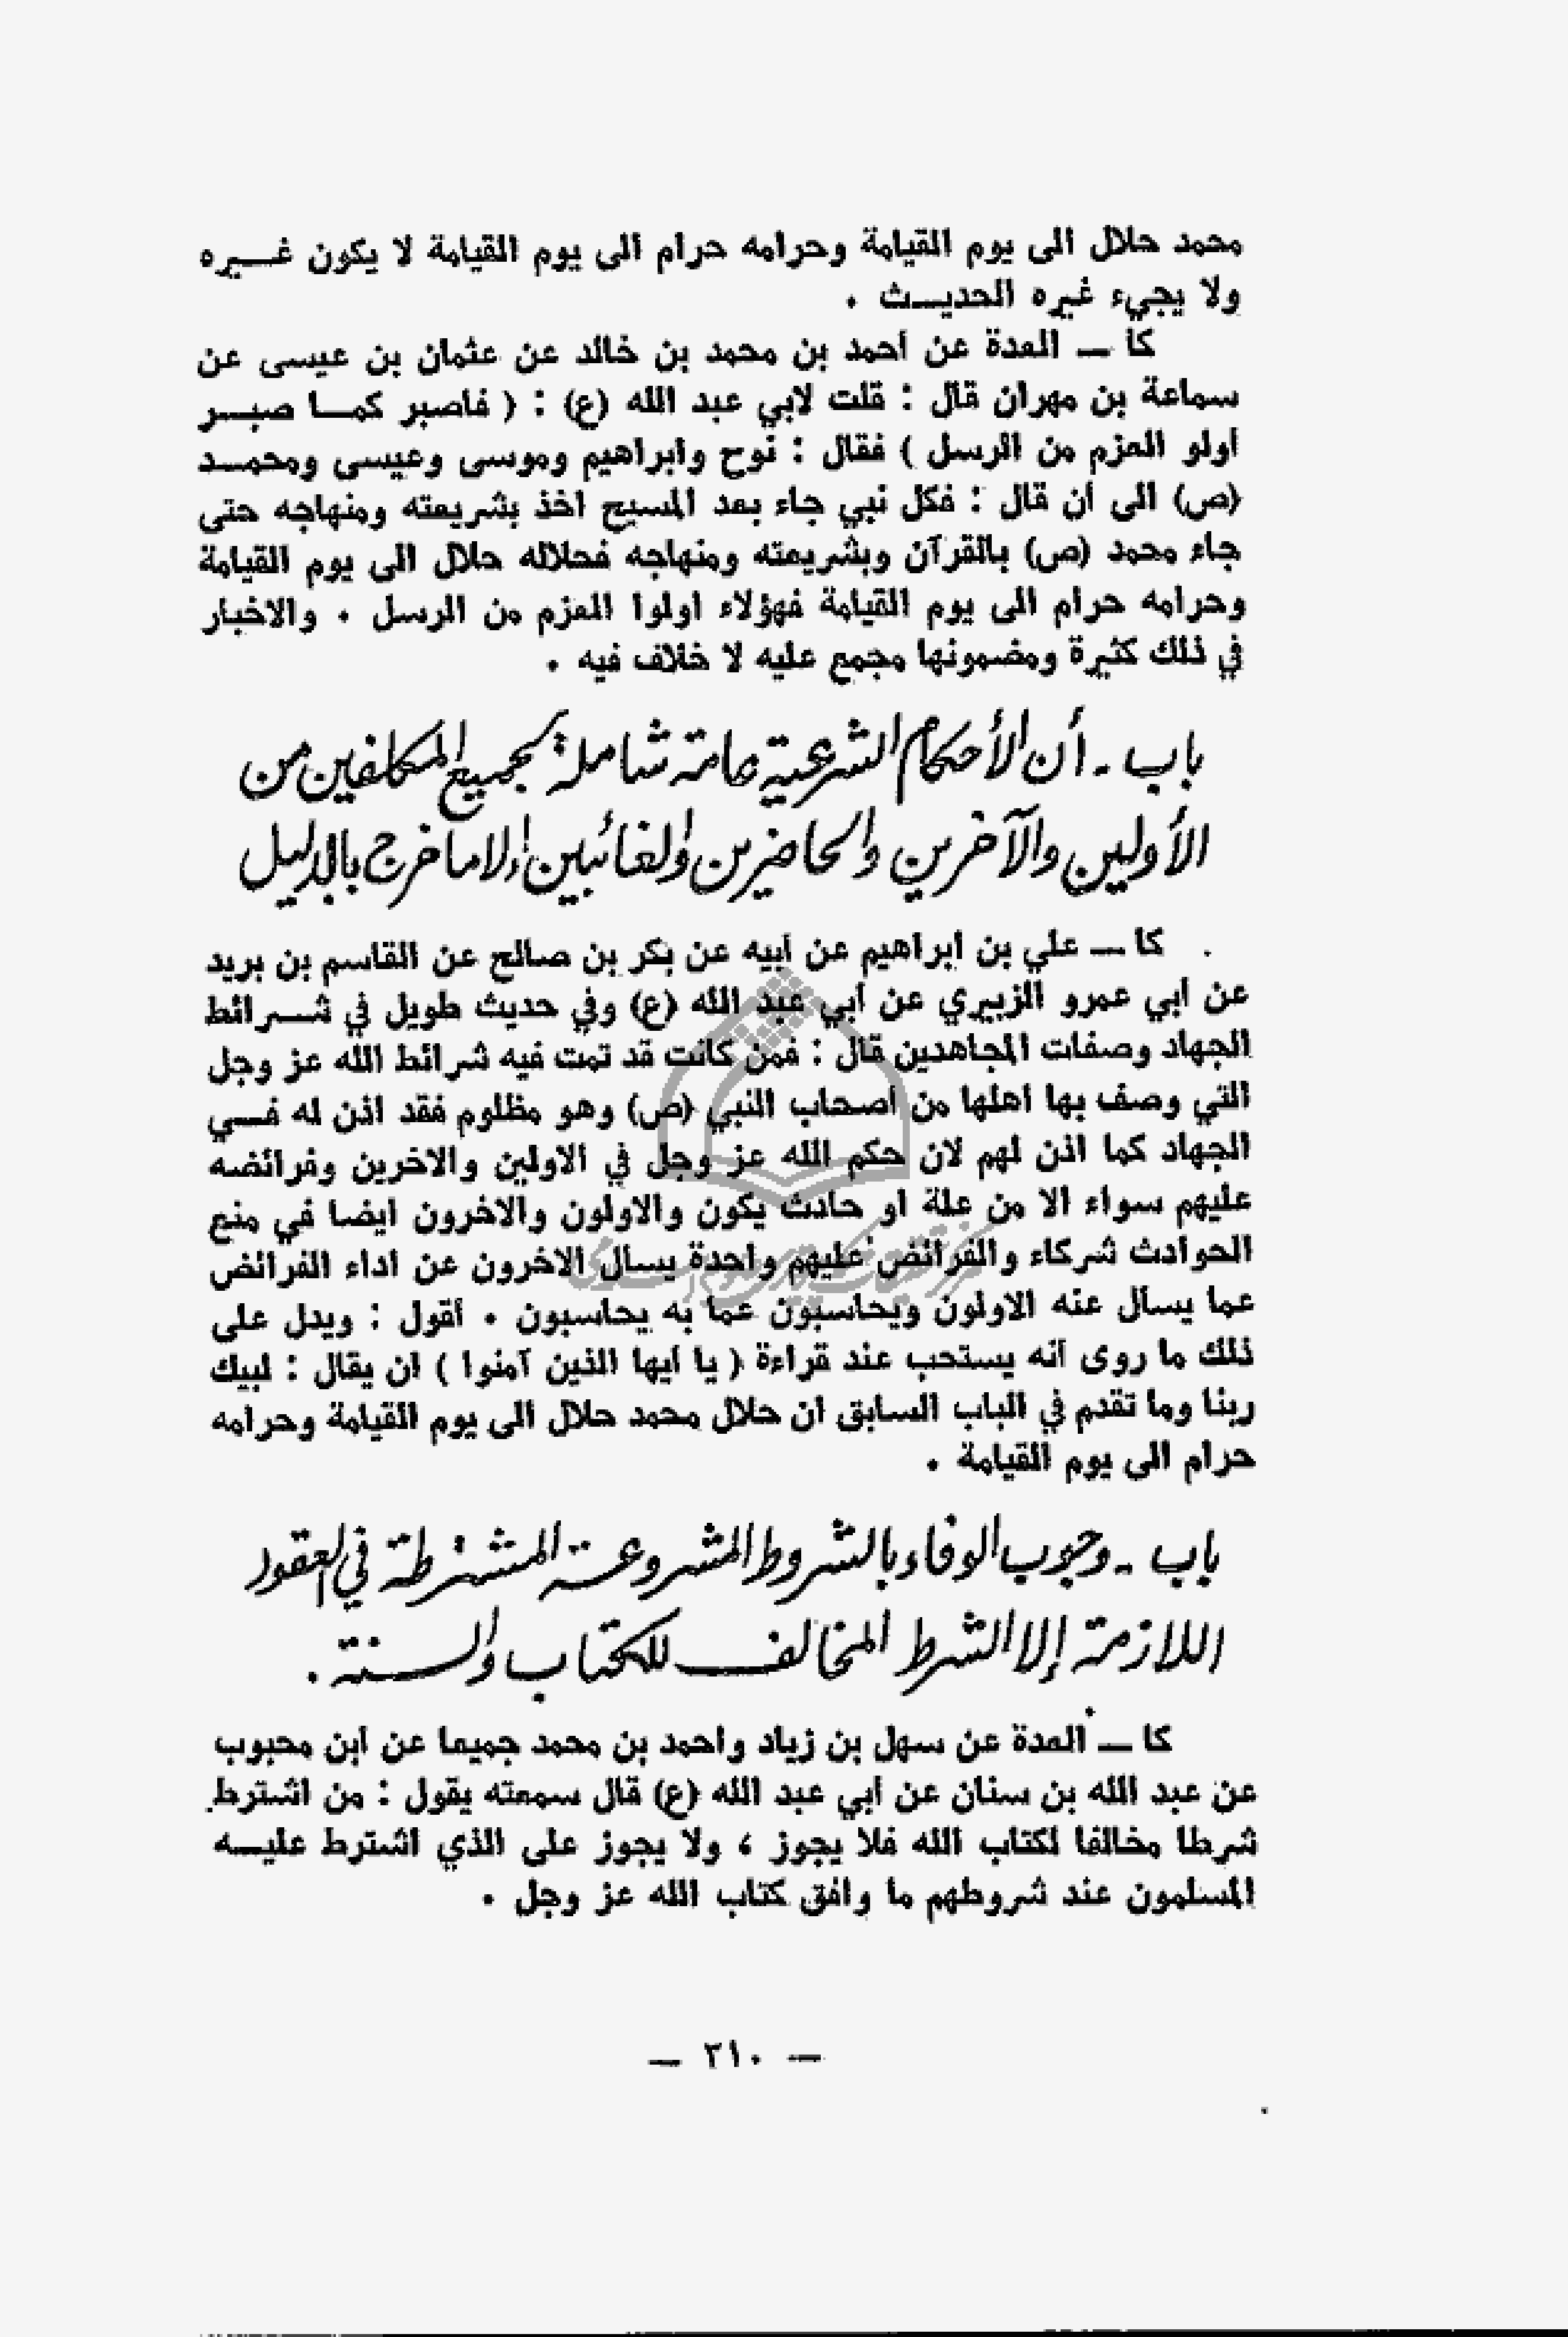 محمد حلال الى يوم القيامة وحرامه حرام الى يوم القيامة لا يكون غـــيره
ولا يجيء غيره الحديـــث .
كا — العدة عن أحمد بن محمد بن خالد عن عثمان بن عيسى عن
سماعة بن مهران قال : قلت لابي عبد الله (ع) : ( فاصبر كمـــا صبـــر
أولو العزم من الرسل ) فقال : نوح وابراهيم وموسى وعيسى ومحمـــد
(ص) الى أن قال : فكل نبي جاء بعد المسيح اخذ بشريعته ومنهاجه حتى
جاء محمد (ص) بالقرآن وبشريعته ومنهاجه فحلاله حلال الى يوم القيامة
وحرامه حرام الى يوم القيامة فهؤلاء اولوا العزم من الرسل . والاخبار
في ذلك كثيرة ومضمونها مجمع عليه لا خلاف فيه .
باب - أن الأحكام الشرعية عامة شاملة لجميع المكلفين من
الأولين والآخرين والحاضرين والغائبين إلا ما خرج بالدليل
كا — علي بن ابراهيم عن أبيه عن بكر بن صالح عن القاسم بن بريد
عن أبي عمرو الزبيري عن أبي عبد الله (ع) وفي حديث طويل في شـــرائط
الجهاد وصفات المجاهدين قال : فمن كانت قد تمت فيه شرائط الله عز وجل
التي وصف بها أهلها من أصحاب النبي (ص) وهو مظلوم فقد اذن له فـــي
الجهاد كما اذن لهم لان حكم الله عز وجل في الاولين والاخرين وفرائضه
عليهم سواء الا من علة او حادث يكون والاولون والاخرون ايضا في منع
الحوادث شركاء والفرائض عليهم واحدة يسأل الاخرون عن اداء الفرائض
عما يسأل عنه الاولون ويحاسبون عما به يحاسبون . أقول : ويدل على
ذلك ما روى أنه يستحب عند قراءة ( يا أيها الذين آمنوا ) ان يقال : لبيك
ربنا وما تقدم في الباب السابق ان حلال محمد حلال الى يوم القيامة وحرامه
حرام الى يوم القيامة .
باب - وجوب الوفاء بالشروط المشروعة المشترطة في العقود
اللازمة إلا الشرط المخالف للكتاب والسنة .
كا — العدة عن سهل بن زياد واحمد بن محمد جميعا عن ابن محبوب
عن عبد الله بن سنان عن أبي عبد الله (ع) قال سمعته يقول : من اشترط
شرطا مخالفا لكتاب الله فلا يجوز ، ولا يجوز على الذي اشترط عليـــه
المسلمون عند شروطهم ما وافق كتاب الله عز وجل .
— ٣١٠ —